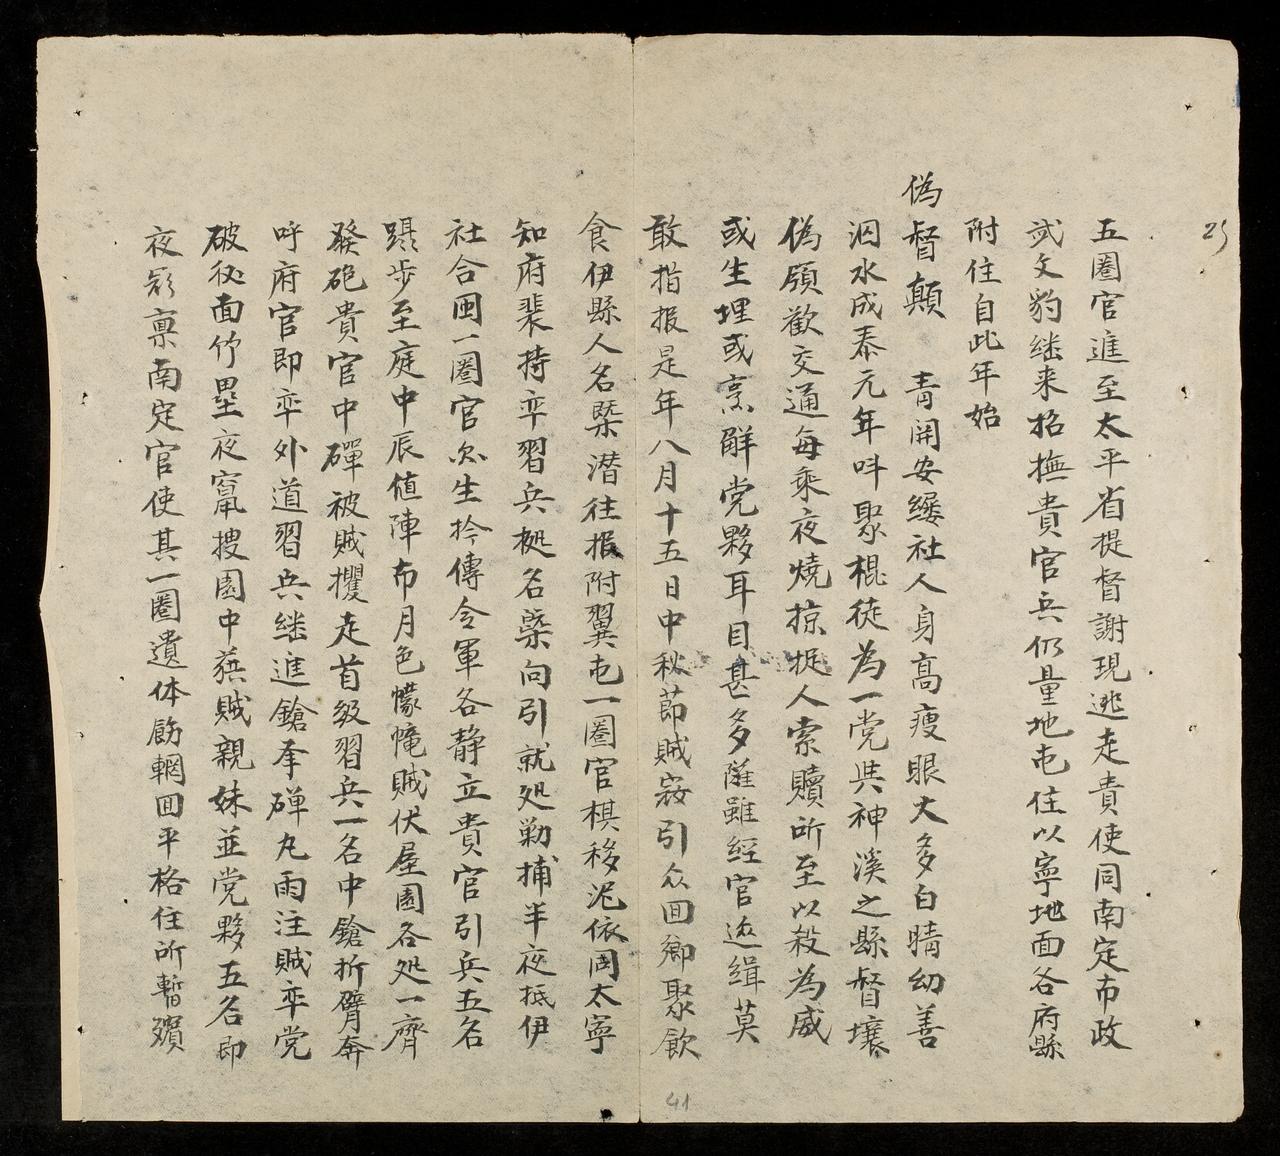 25
五圈官進至太平省提督謝現逃走貴使同南定布政
武文豹継来招撫貴官兵仍量地屯住以寧地面各府縣
附住自此年始
偽督顛 青関安纓社人身高瘦眼大多白睛幼善
泅水成泰元年呌聚棍徒為一党與神溪之縣督壤
偽領歡交通每乘夜燒掠捉人索贖所至以殺為威
或生埋或烹觧党夥耳目甚多蓷雖經官迯緝莫
敢指报是年八月十五日中秋節賊窃引众囬鄉聚飲
食伊縣人名槩潜往报附翼屯一圈官棋移泥依同太寧
知府裴持率習兵拠名槩向引就处勦捕半夜抵伊
社合围一圈官欲生拎傳令軍各静立貴官引兵五名
蹑步至庭中辰值陣布月色幪㡡賊伏屋園各处一齊
發砲貴官中磾被賊攫走首級習兵一名中鎗折臂奔
呼府官即率外道習兵継進鎗奔磾丸雨注賊率党
破砂面竹壘夜竄搜園中蓺賊親妹並党夥五名即
夜飭禀南定官使其一圈遺体飭輞囬平格住所暫殯
41